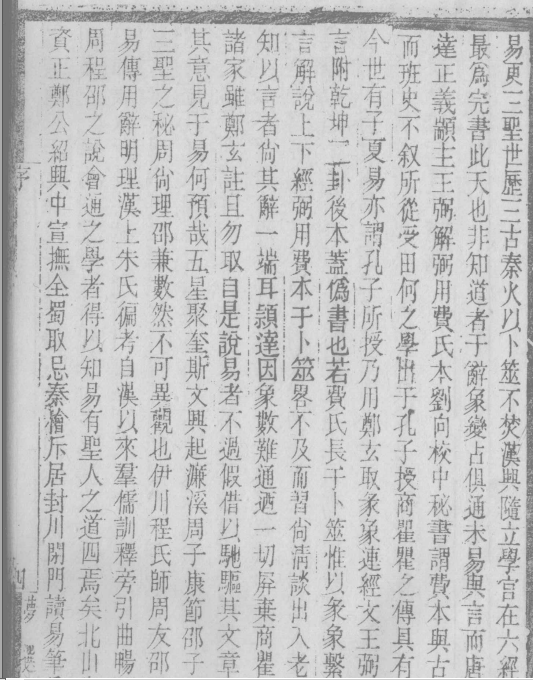 易更三聖世歷三古秦火以卜筮不焚漢興隨立學官在六經
最爲完書此天也非知道者于辭象變占俱通未易與言而唐
達正義顓主王弼解弼用費氏本劉向校中秘書謂費本與古
而班史不叙所從受田何之學出于孔子授商瞿瞿之傳具有
今世有子夏易亦謂孔子所授乃用鄭玄取彖象連經文王弼
言附乾坤二卦後本蓋僞書也若費氏長于卜筮惟以彖象繫
言解說上下經弼用費本于卜筮畧不及而習尙淸談出入老
知以言者尙其辭一端耳頴達因象數難通遒一切屏棄商瞿
諸家雖鄭玄註且勿取自是說易者不過假借以馳驅其文章
其意見于易何預哉五星聚奎斯文興起濂溪周子康節邵子
三聖之秘周尙理邵兼數然不可異觀也伊川程氏師周友邵
易傳用辭明理漢上朱氏徧考自漢以來羣儒訓釋旁引曲暢
周程邵之說會通之學者得以知易有聖人之道四焉矣北山
資正鄭公紹興中宣撫全蜀取忌秦檜斥居封川閉門讀易筆
序